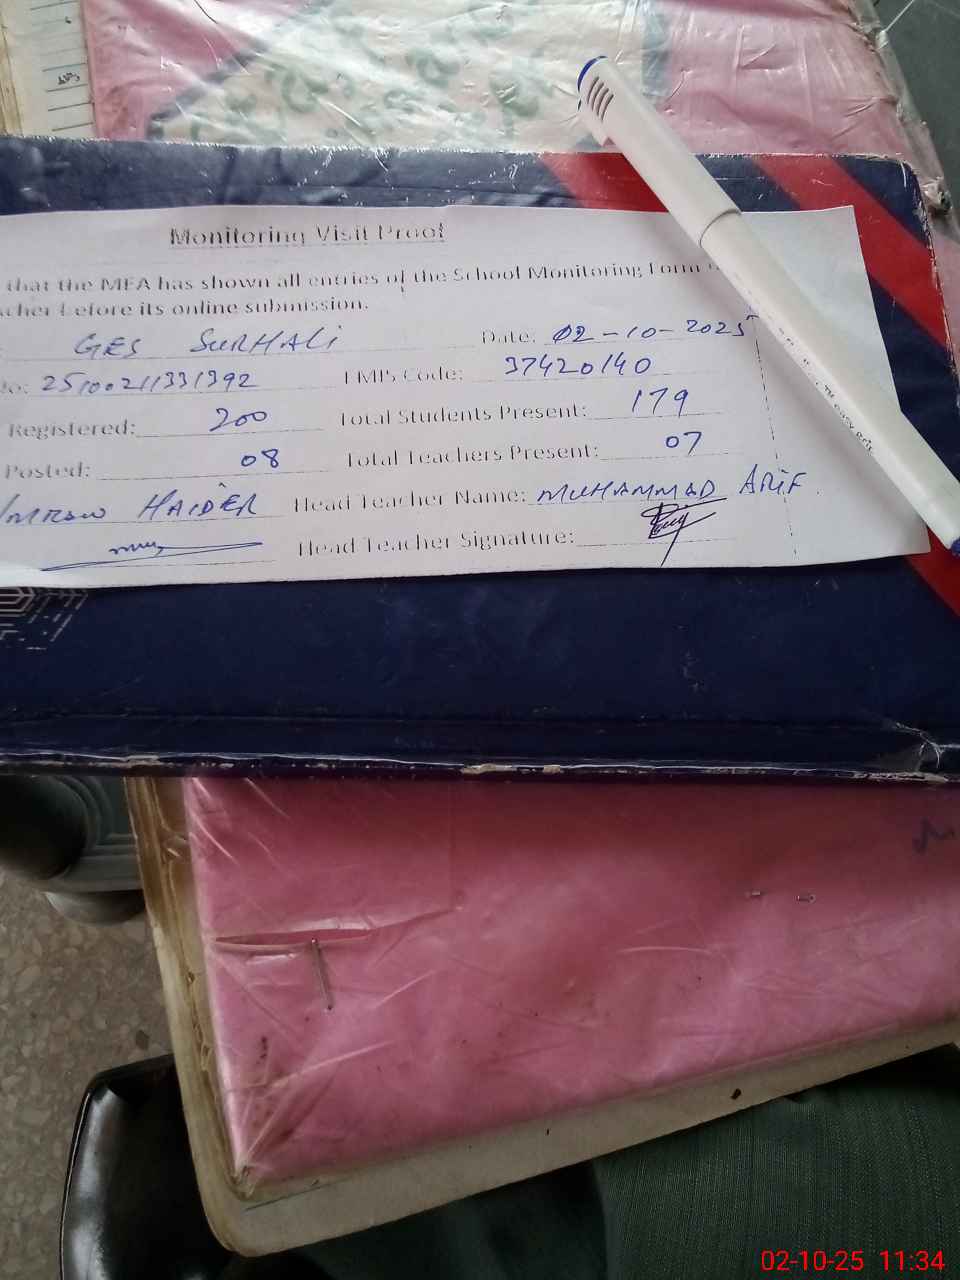 Monitoring Visit Proof
that the MEA has shown all entries of the School Monitoring Form
cher before its online submission.
GES SURHALI Date: 02-10-2025
No: 2510021331392 EMIS Code: 37420140
Registered: 200 Total Students Present: 179
Posted: 08 Total Teachers Present: 07
IMRAN HAIDER Head Teacher Name: MUHAMMAD ARIF.
Head Teacher Signature:
02-10-25 11:34